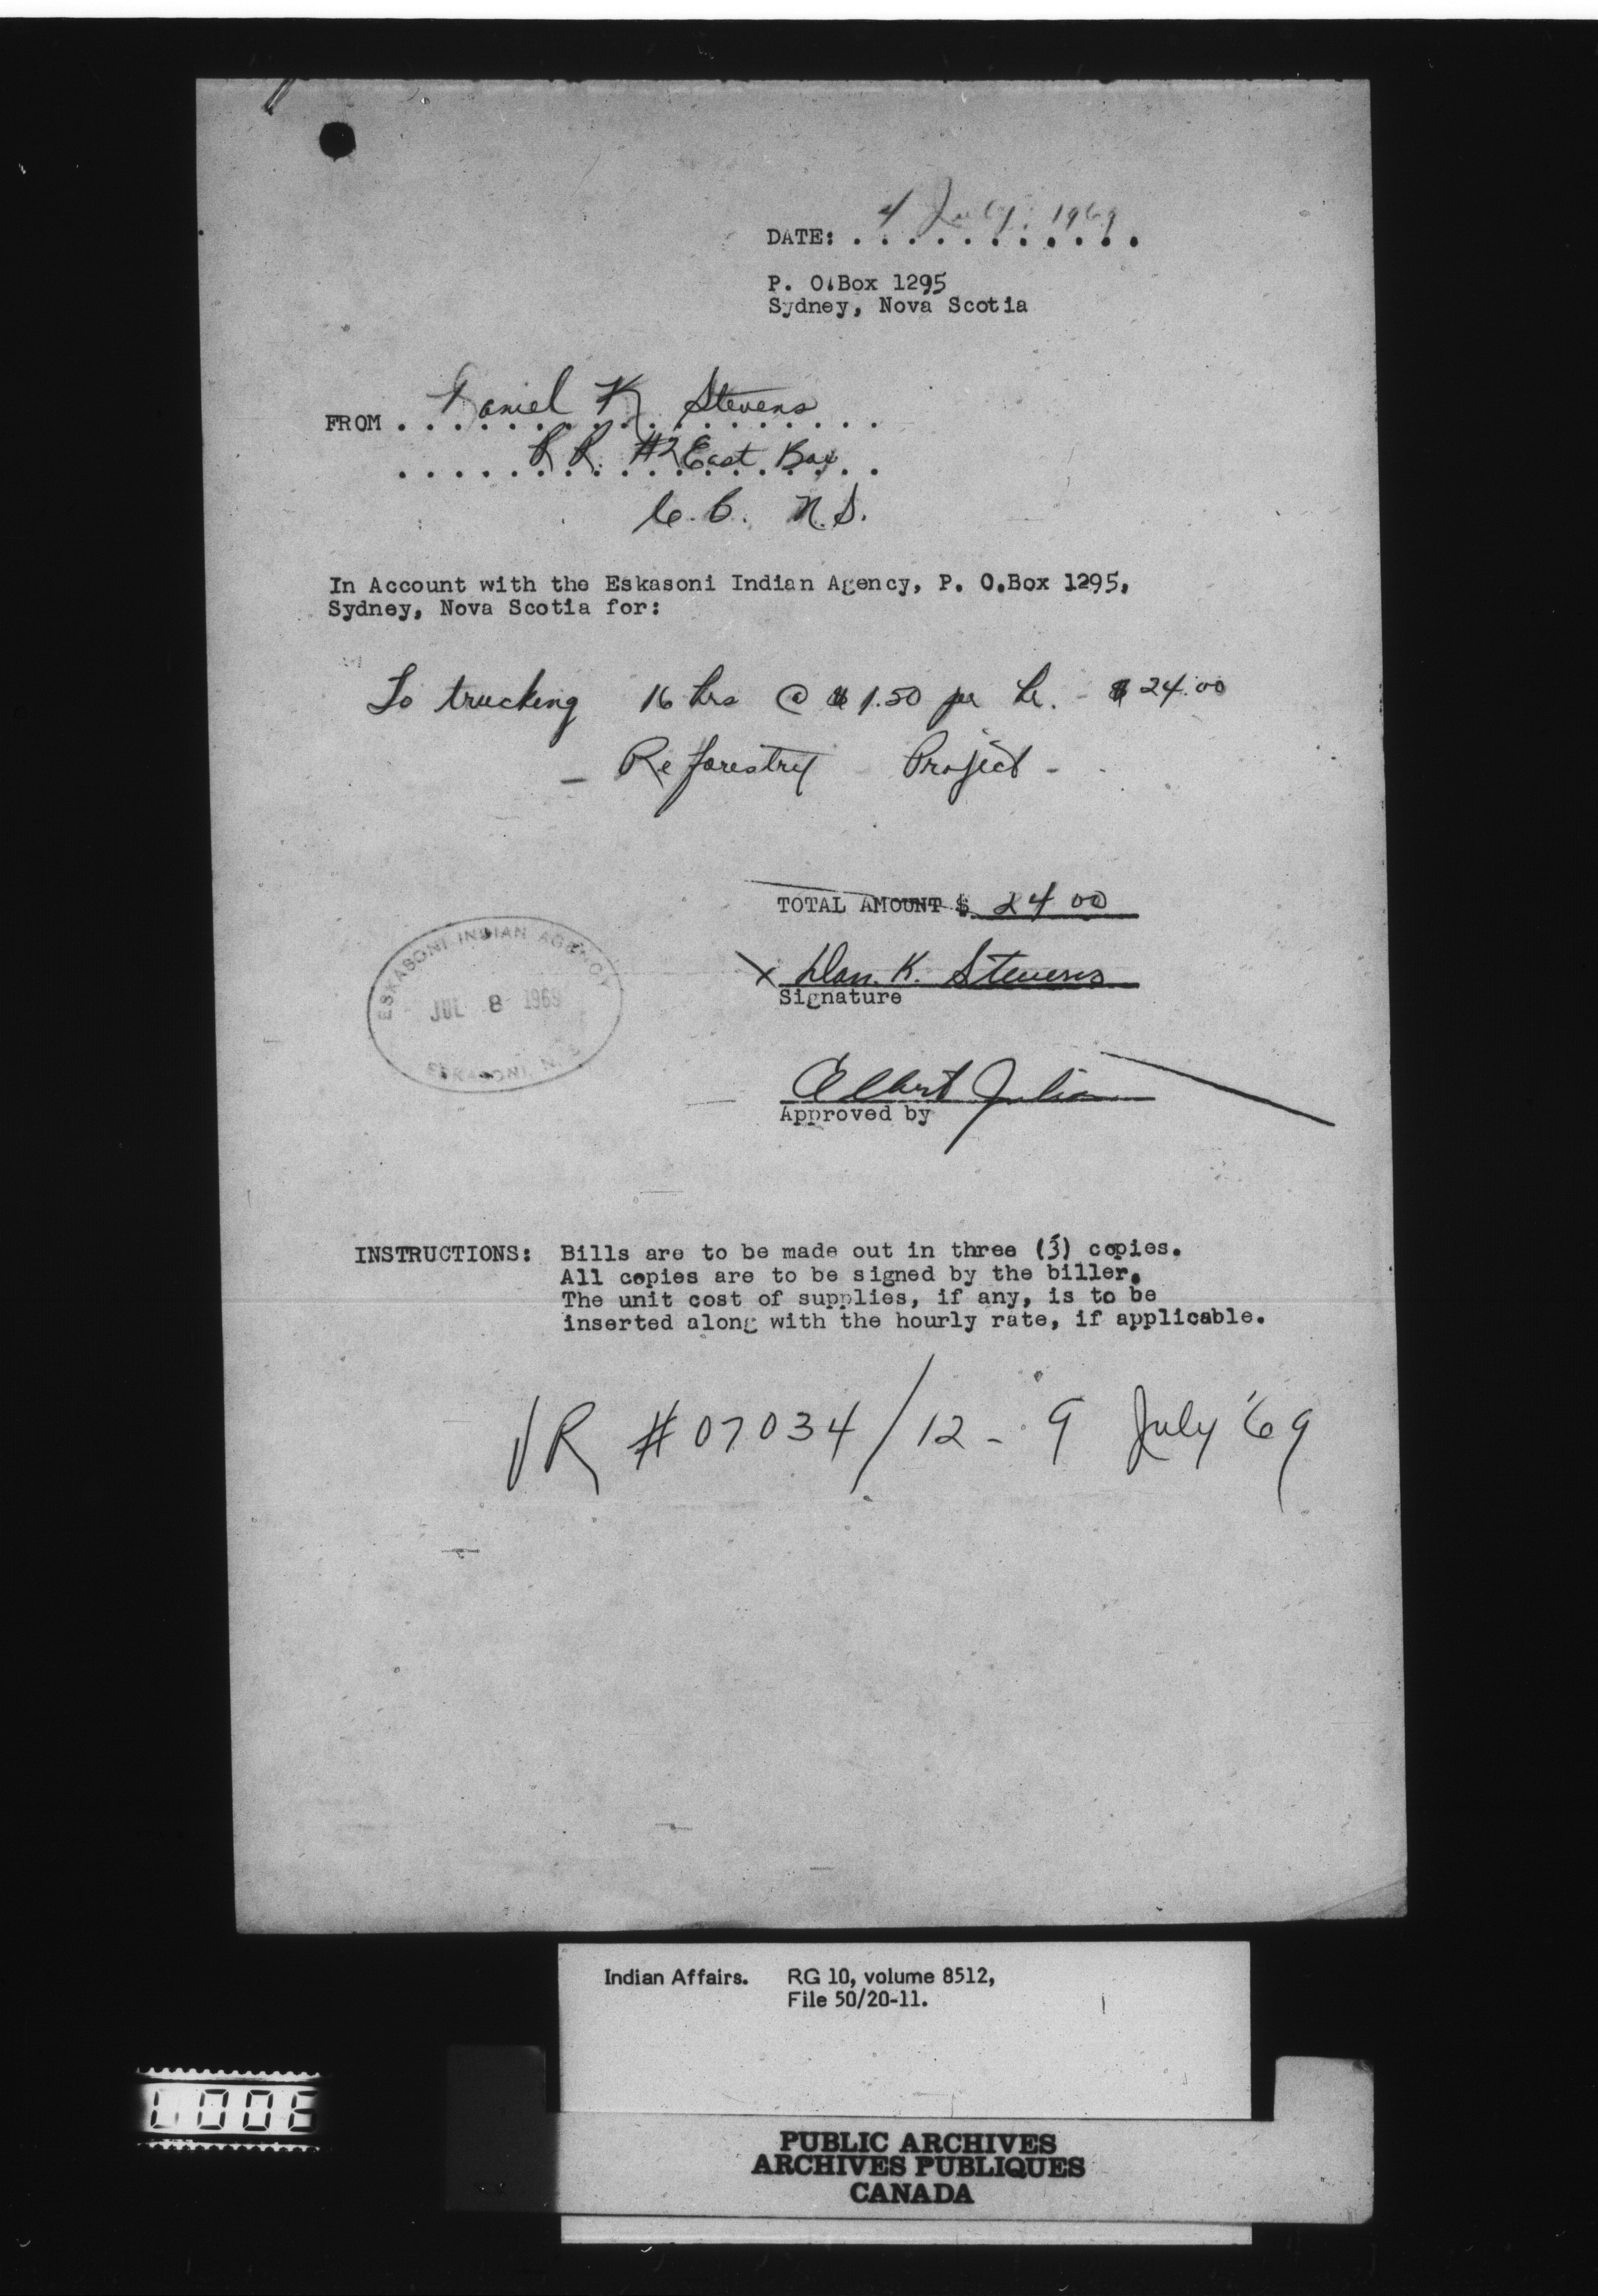 DATE: 4 July 1969
P. O.Box 1295
Sydney, Nova Scotia
FROM Daniel K Stevens
R R. #2 East Bay
C.B. N.S.
In Account with the Eskasoni Indian Agency, P. O.Box 1295,
Sydney, Nova Scotia for:
To trucking 16 hrs @ $1.50 per hr. - $24.00
- Reforestry Project -
TOTAL AMOUNT $ 24 00
ESKASONI INDIAN AGENCY
JUL 8 1969
ESKASONI, N. S.
X Dan. K. Stevens
Signature
Albert Julian
Approved by
INSTRUCTIONS: Bills are to be made out in three (3) copies.
All copies are to be signed by the biller.
The unit cost of supplies, if any, is to be
inserted along with the hourly rate, if applicable.
VR #07034/12 - 9 July '69
Indian Affairs. RG 10, volume 8512,
File 50/20-11.
PUBLIC ARCHIVES
ARCHIVES PUBLIQUES
CANADA